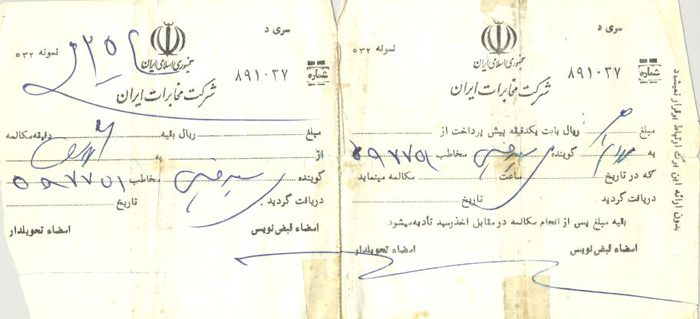 سری د
نمونه ۵۳۲
جمهوری اسلامی ایران
شماره ۸۹۱۰۳۷
شرکت مخابرات ایران
مبلغ ریال بابت یکدقیقه پیش پرداخت از
به گوینده مخاطب ۵۹۷۷۵۱
که در تاریخ ساعت مکالمه مینماید
دریافت گردید تاریخ
بقیه مبلغ پس از انجام مکالمه در مقابل اخذ رسید تأدیه میشود
امضاء قبض نویس امضاء تحویلدار
بدون ارائه این برگ ارتباط برقرار نمیشود
سری د
نمونه ۵۳۲
جمهوری اسلامی ایران
شماره ۸۹۱۰۳۷
شرکت مخابرات ایران
مبلغ ریال بقیه دقیقه مکالمه
از به
گوینده مخاطب ۵۹۷۷۵۱
دریافت گردید. تاریخ
امضاء قبض نویس امضاء تحویلدار